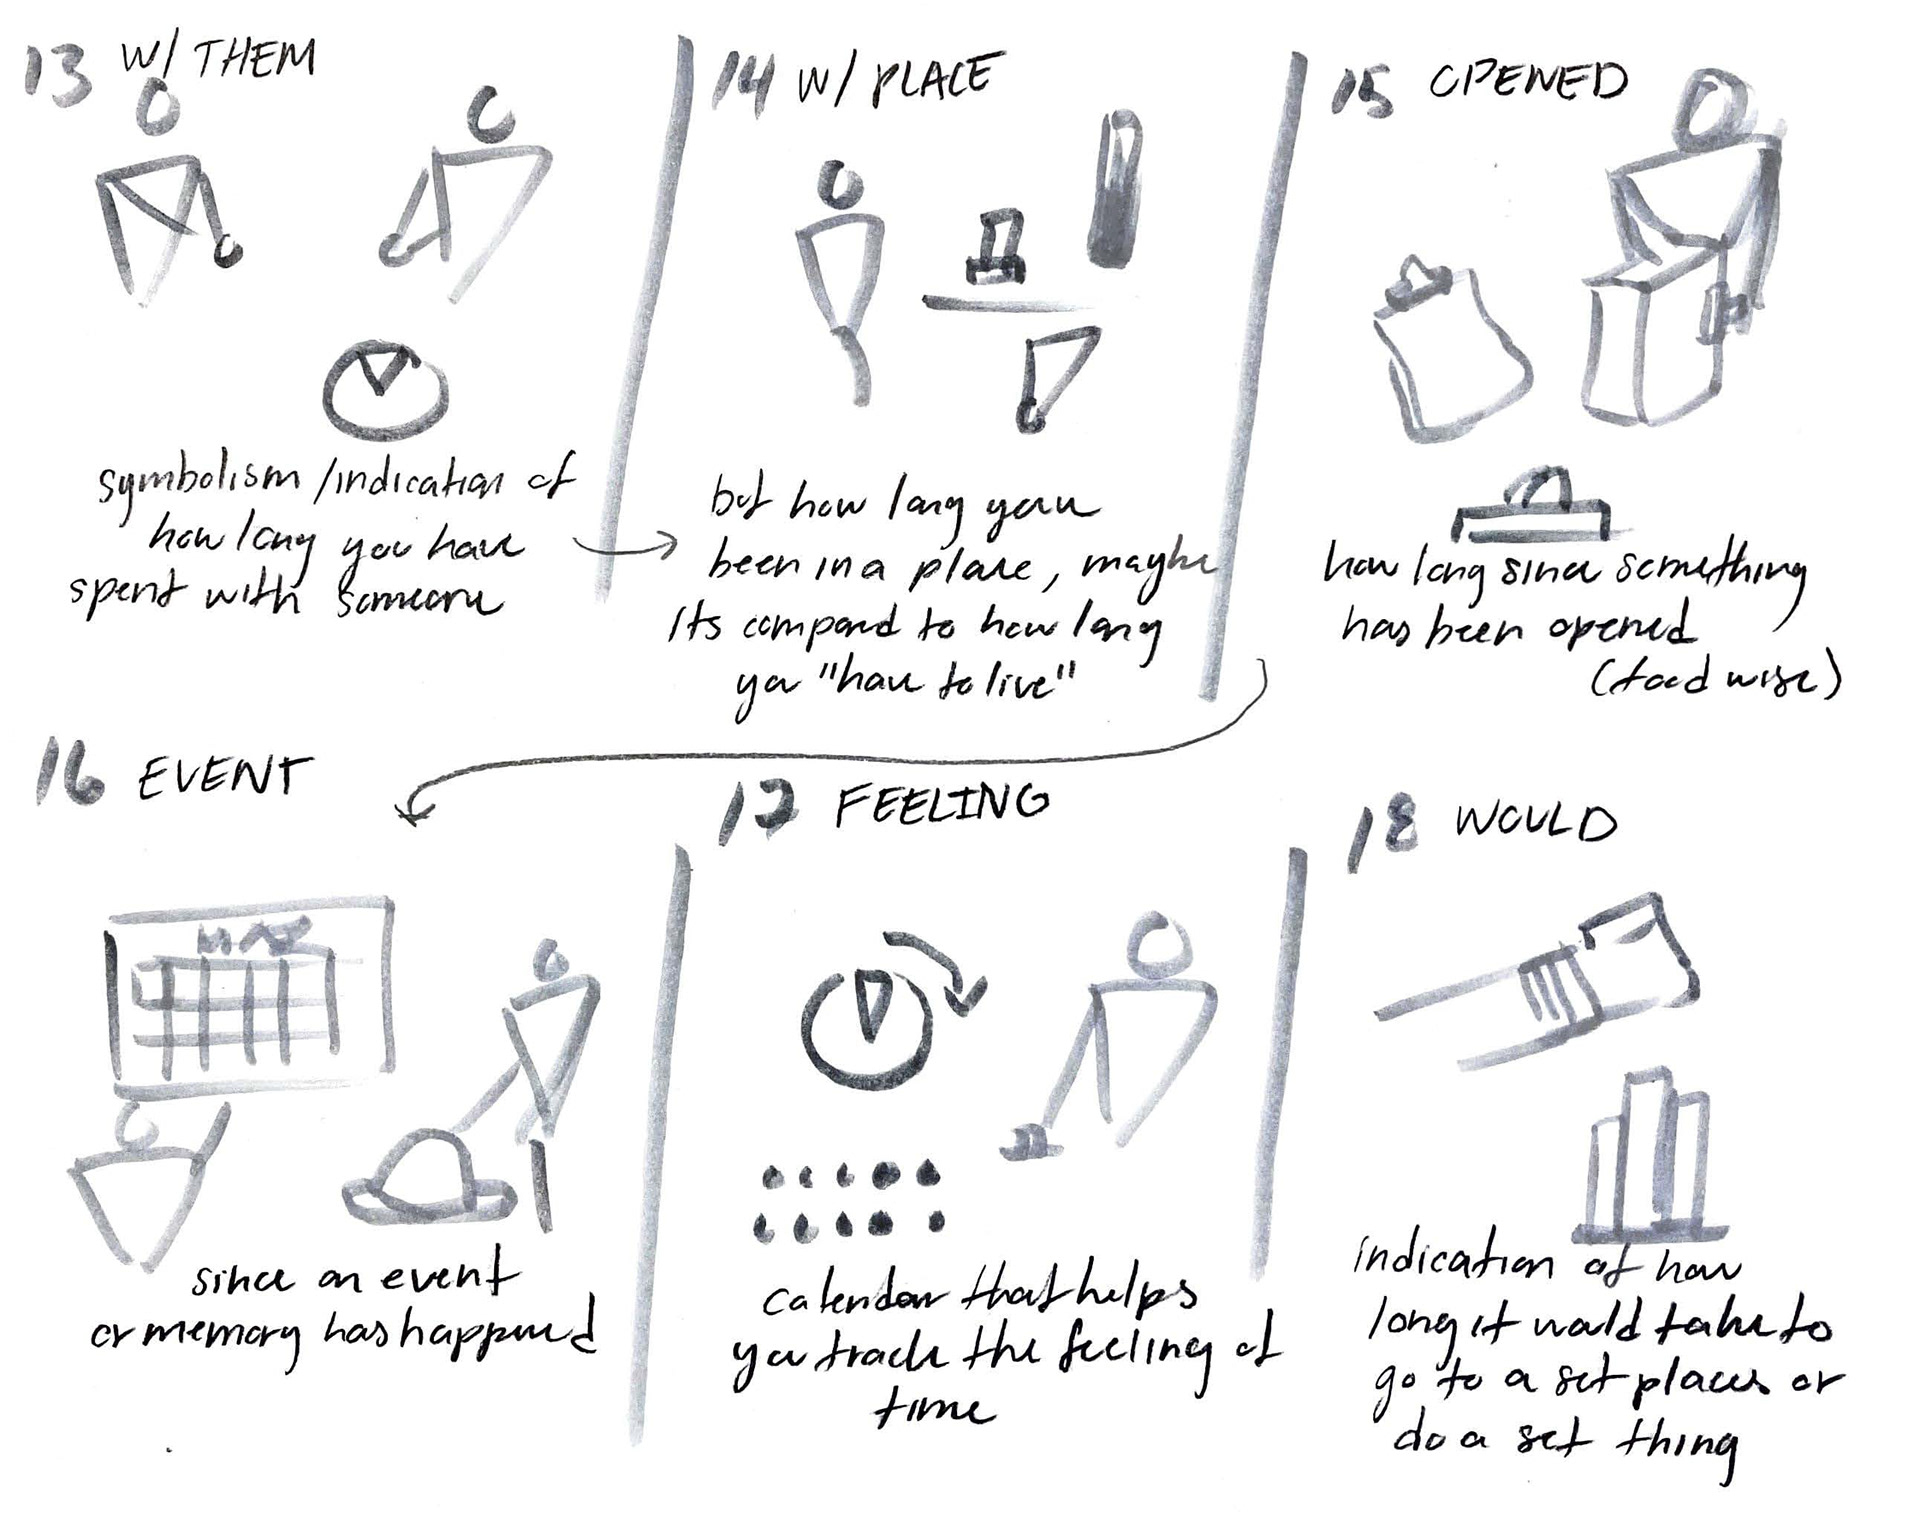 13 W/ THEM
symbolism/indication of
how long you have
spent with someone
14 W/ PLACE
but how long you
been in a place, maybe
its compared to how long
you "have to live"
15 OPENED
how long since something
has been opened
(food wise)
16 EVENT
since an event
or memory has happened
17 FEELING
calendar that helps
you track the feeling of
time
18 WOULD
indication of how
long it would take to
go to a set places or
do a set thing